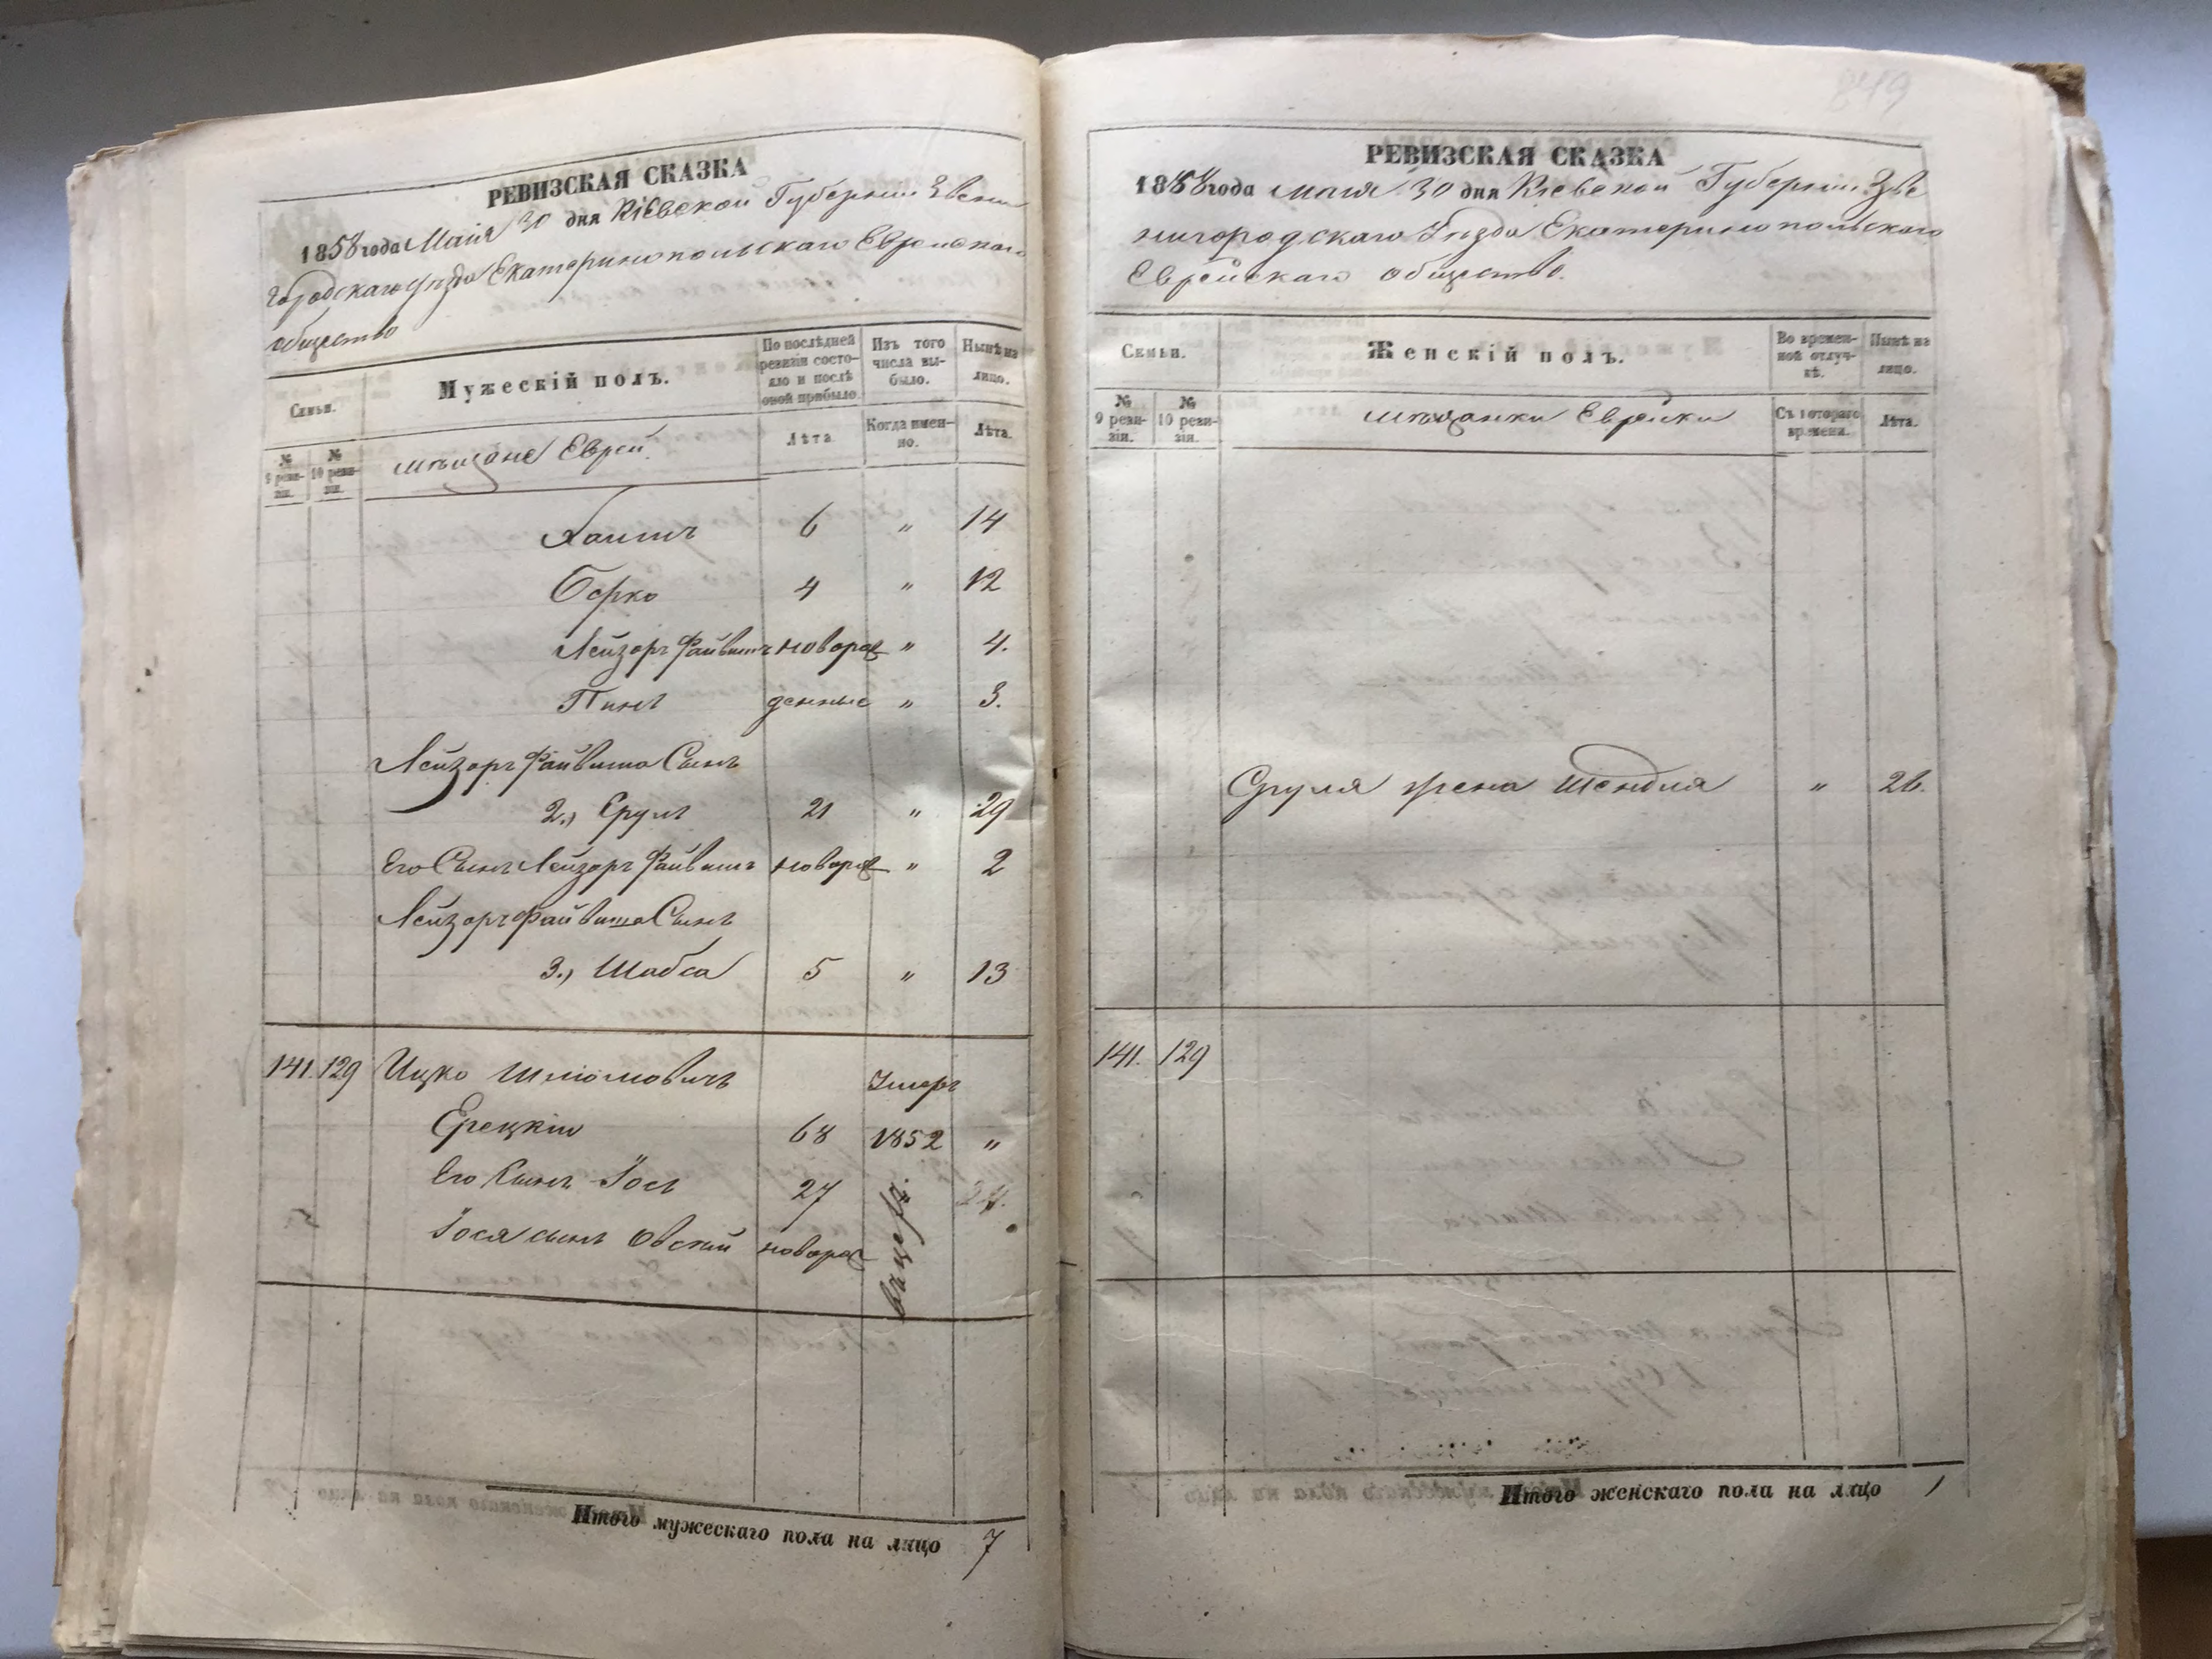 РЕВИЗСКАЯ СКАЗКА
1858 года Маія 30 дня Кіевской Губерніи Звени
городскаго уѣзда Екатеринопольскаго Еврейскаго
общества
Семьи.
Мужескій полъ.
По послѣдней ревизіи состояло и послѣ оной прибыло.
Изъ того числа выбыло.
Нынѣ на лицо.
№ 9 ревизіи.
№ 10 ревизіи.
мѣщане Евреи
Лѣта
Когда именно.
Лѣта.
Хаимъ 6 " 14
Берко 4 " 12
Лейзоръ Файвишъ новорож " 4.
Пинъ денные " 3.
Лейзоръ Файвиша Сынъ
2.) Срулъ 21 " 29
Его Сынъ Лейзоръ Файвишъ новорож " 2
Лейзоръ Файвиша Сынъ
3.) Шабса 5 " 13
141. 129 Ицко Шліомовичъ Умеръ
68 1852 "
Его Сынъ Іосъ 27
Іося сынъ Овсѣй новорож
Итого мужескаго пола на лицо 7
849
РЕВИЗСКАЯ СКАЗКА
1858 года Маія 30 дня Кіевской Губерніи Зве
нигородскаго Уѣзда Екатеринопольскаго
Еврейскаго общества.
Семьи.
Женскій полъ.
Во временной отлучкѣ.
Нынѣ на лицо.
№ 9 ревизіи.
№ 10 ревизіи.
мѣщанки Еврейки
Съ котораго времени.
Лѣта.
Сруля жена Шендля " 26.
141. 129
Итого женскаго пола на лицо 1